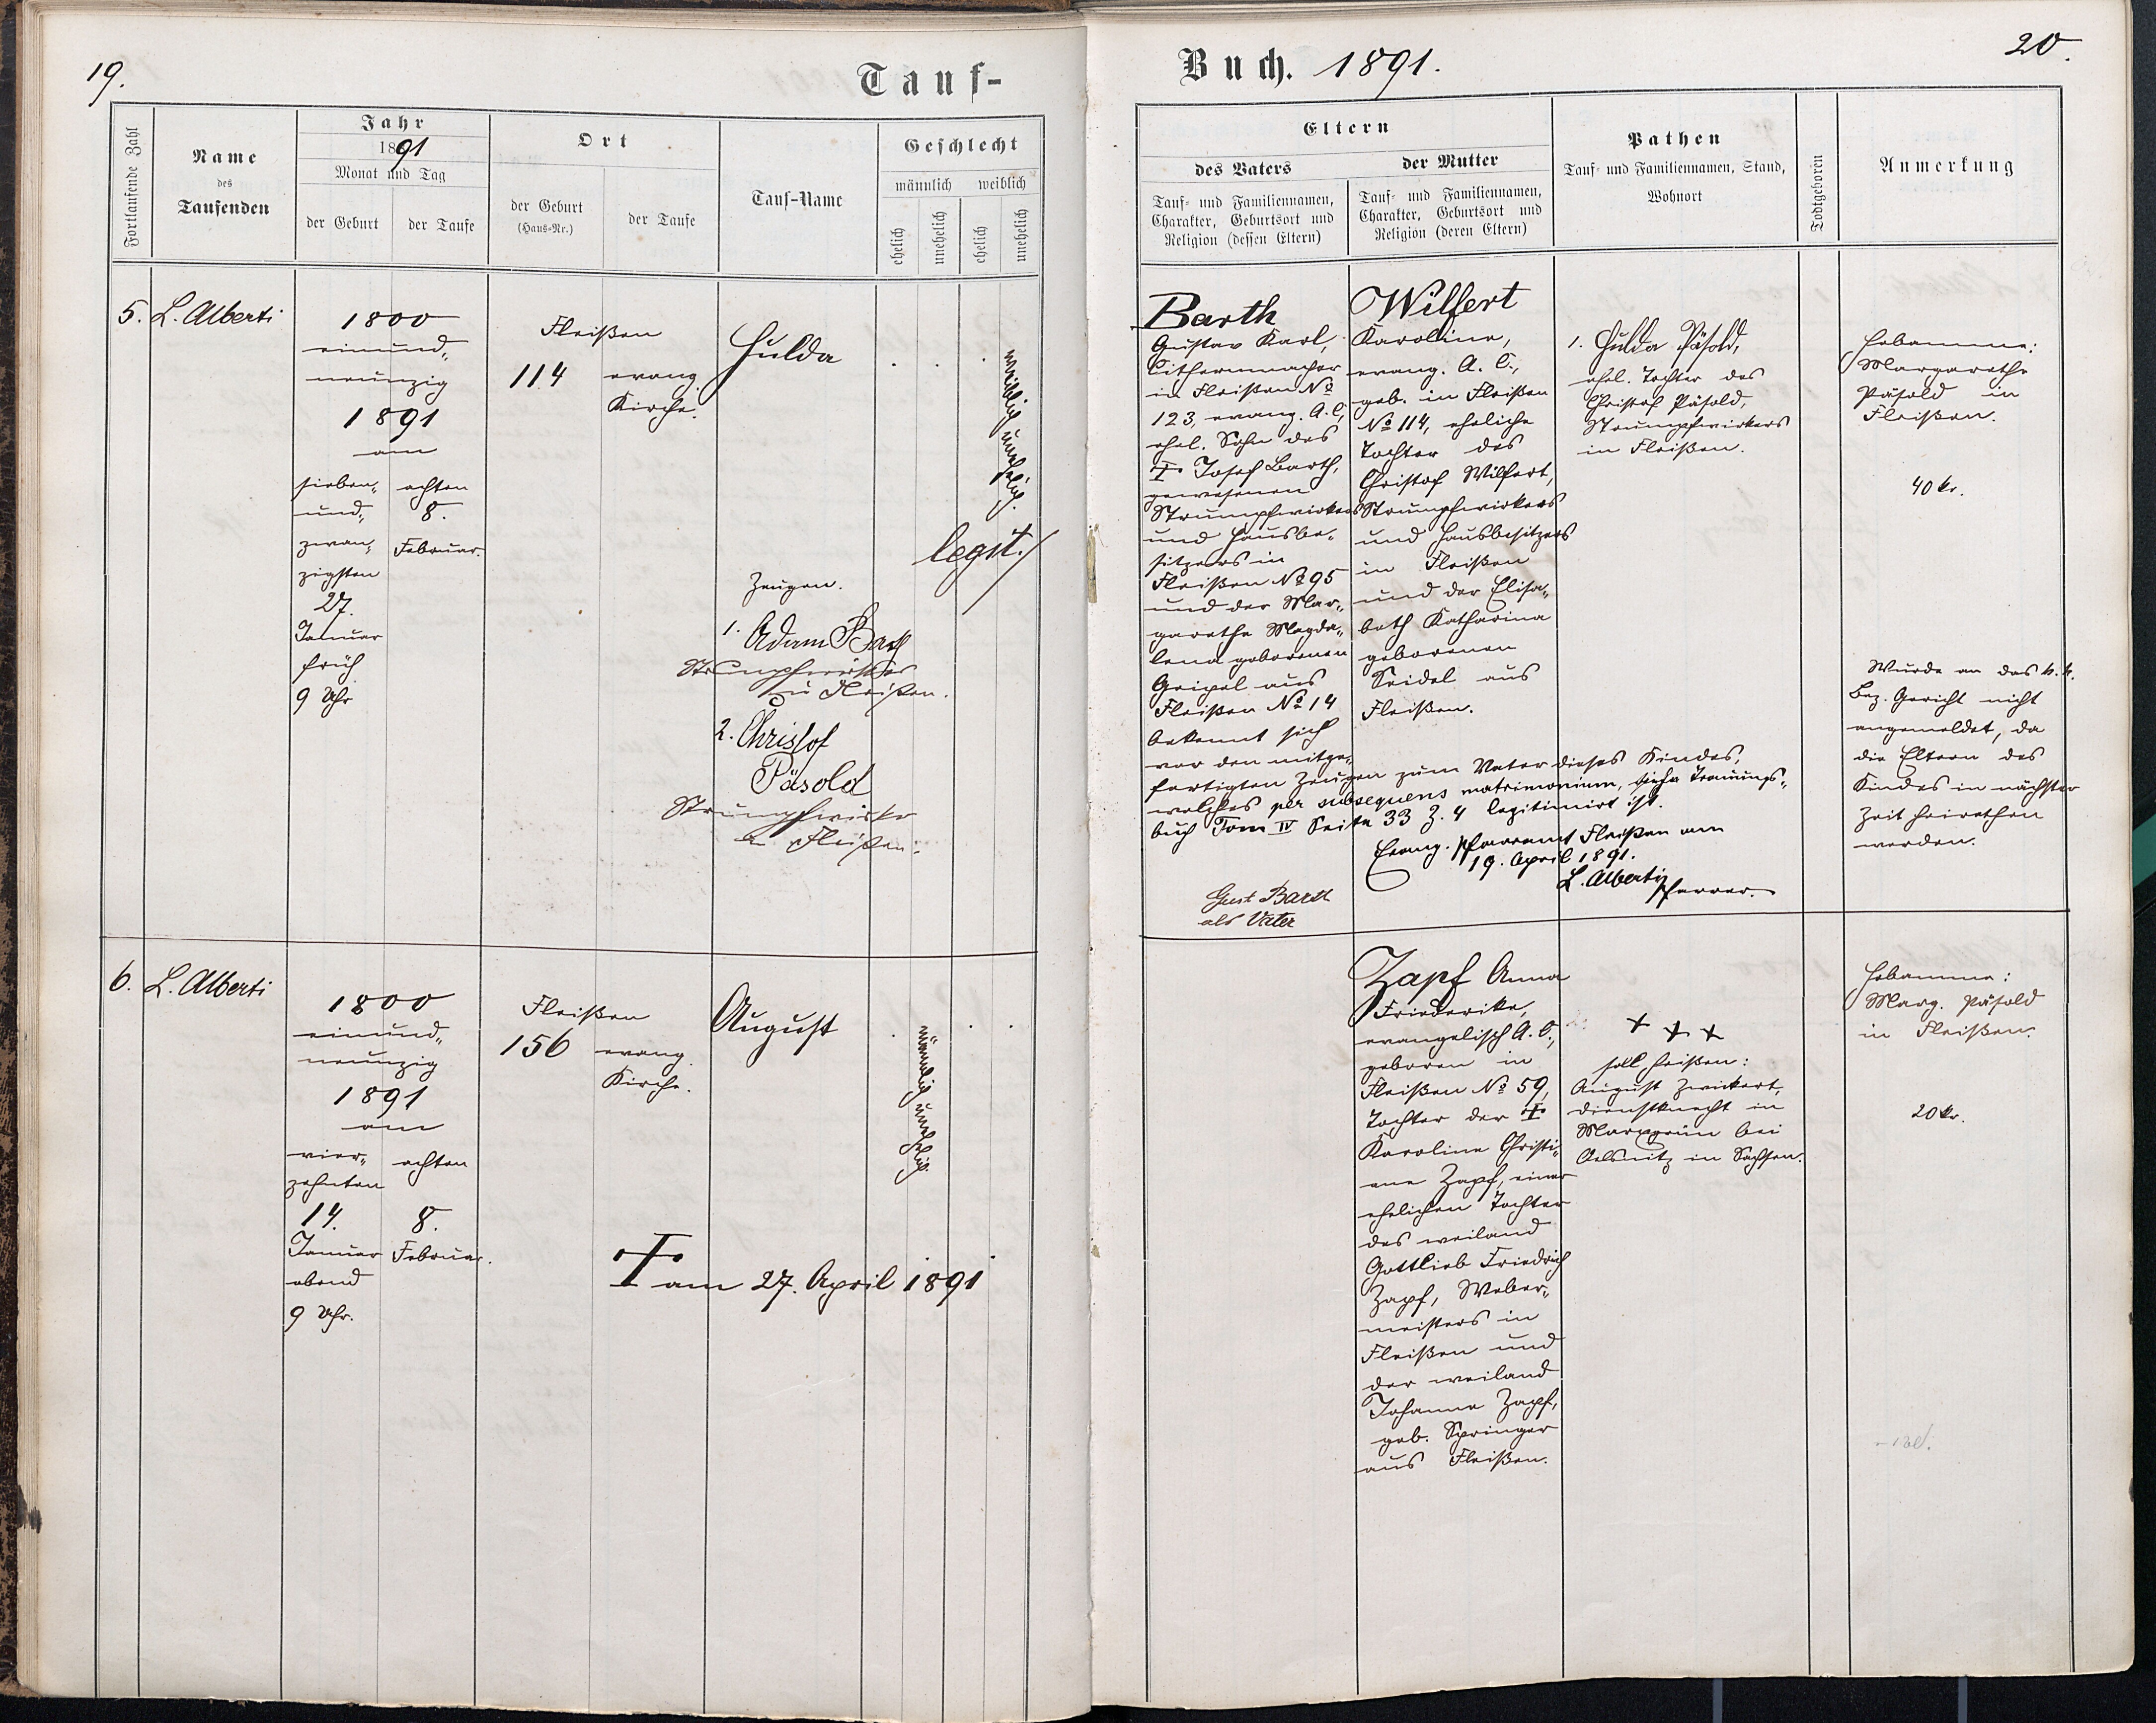 19.
Tauf-
Fortlaufende Zahl
Name
des
Taufenden
Jahr
1891
Monat und Tag
der Geburt
der Taufe
Ort
der Geburt
(Haus-Nr.)
der Taufe
Tauf-Name
Geschlecht
männlich
weiblich
ehelich
unehelich
ehelich
unehelich
5.
L. Alberti
1800
einund„
neunzig
1891
am
sieben„
und„
zwan„
zigsten
27.
Januar
früh
9 Uhr
achten
8.
Februar.
Fleißen
114
evang.
Kirche.
Hulda
weiblich unehelich.
legit./
Zeugen.
1. Adam Barth
Strumpfwirker
zu Fleißen.
2. Christof
Päsold
Strumpfwirker
in Fleißen.
6.
L. Alberti
1800
einund„
neunzig
1891
am
vier„
zehnten
14.
Januar
abend
9 Uhr.
achten
8.
Februar.
Fleißen
156
evang.
Kirche.
August
männlich unehelich
† am 27. April 1891
Buch. 1891.
20.
Eltern
des Vaters
Tauf- und Familiennamen,
Charakter, Geburtsort und
Religion (dessen Eltern)
der Mutter
Tauf- und Familiennamen,
Charakter, Geburtsort und
Religion (deren Eltern)
Pathen
Tauf- und Familiennamen, Stand,
Wohnort
Todtgeboren
Anmerkung
Barth
Gustav Karl,
Cithermacher
in Fleißen No
123, evang. A. C.,
ehel. Sohn des
† Josef Barth,
gewesenen
Strumpfwirkers
und Hausbe„
sitzers in
Fleißen No 95
und der Mar„
garetha Magda„
lena geborenen
Geipel aus
Fleißen No 14
bekennt sich
vor den mitge„
fertigten Zeugen zum Vater dieses Kindes,
welches per subsequens matrimonium, siehe Trauungs„
buch Tom IV Seite 33 Z. 4 legitimirt ist.
Evang. Pfarramt Fleißen am
19. April 1891.
L. Alberti
Pfarrer.
Gust Barth
als Vater
Wilfert
Karoline,
evang. A. C.,
geb. in Fleißen
No 114, eheliche
Tochter des
Christof Wilfert,
Strumpfwirkers
und Hausbesitzers
in Fleißen
und der Elisa„
beth Katharina
geborenen
Seidel aus
Fleißen.
1. Hulda Päsold,
ehel. Tochter des
Christof Päsold,
Strumpfwirkers
in Fleißen.
Hebamme:
Margarethe
Päsold in
Fleißen.
40 kr.
Wurde an das k. k.
Bez. Gericht nicht
angemeldet, da
die Eltern des
Kindes in nächster
Zeit heirathen
werden.
Zapf Anna
Friederike,
evangelisch A. C.,
geboren in
Fleißen No 59,
Tochter der †
Karoline Christi„
ane Zapf, einer
ehelichen Tochter
des weiland
Gottlieb Friedrich
Zapf, Weber„
meisters in
Fleißen und
der weiland
Johanna Zapf,
geb. Springer
aus Fleißen.
+ + +
soll heißen:
August Zwickert,
Dienstknecht in
Marxgrün bei
Oelsnitz in Sachsen.
Hebamme:
Marg. Päsold
in Fleißen.
20 kr.